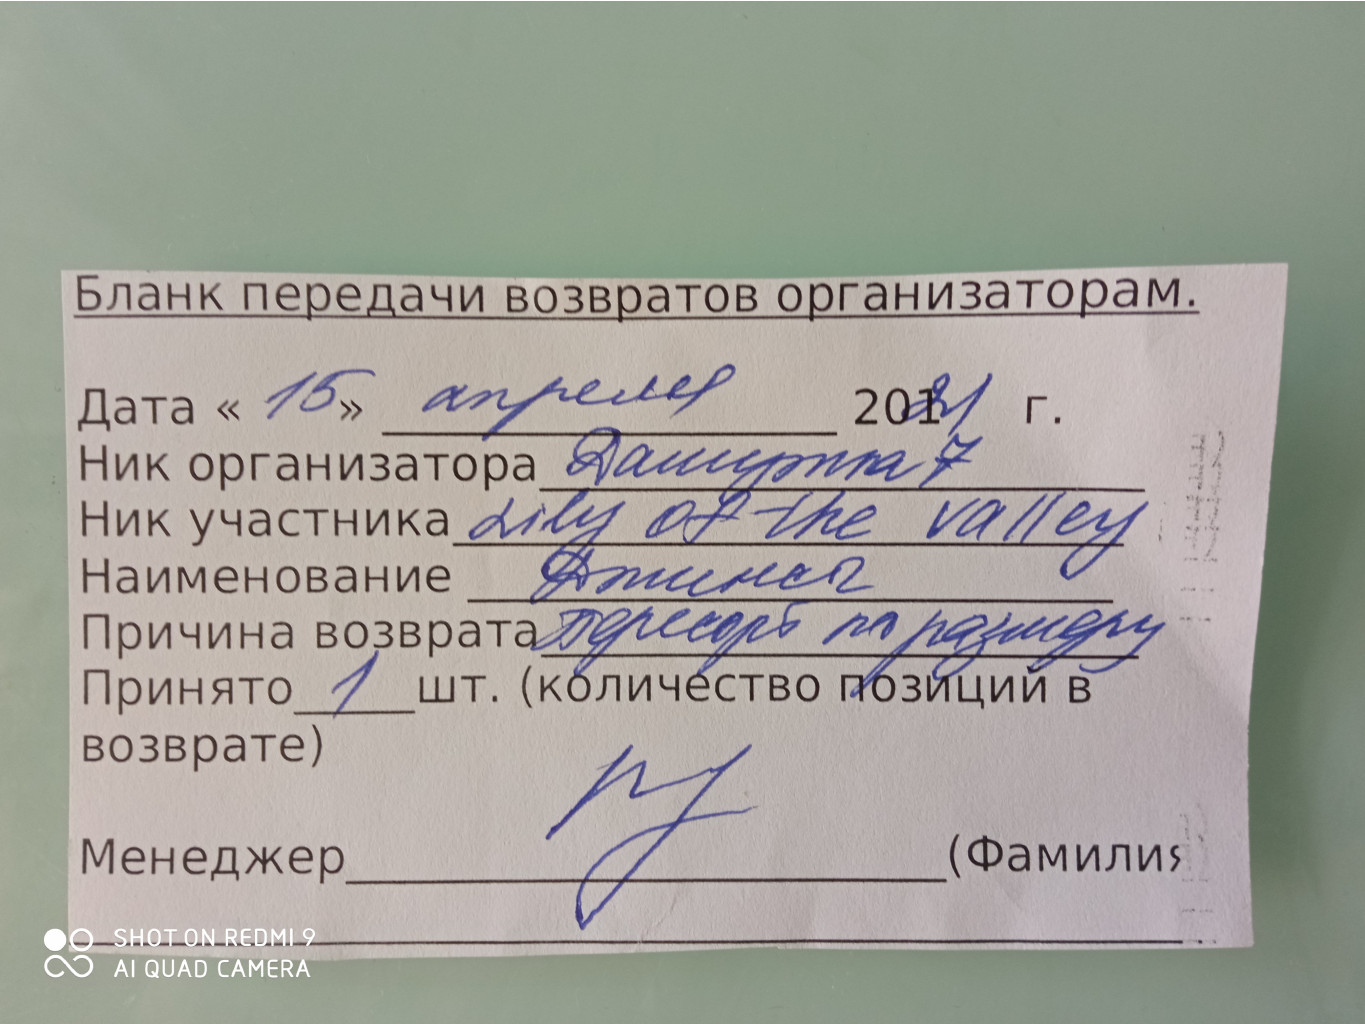 Бланк передачи возвратов организаторам.
Дата « 15 » апреля 2021 г.
Ник организатора Дашутка 7
Ник участника Lily of the valley
Наименование Джинсы
Причина возврата Пересорт по размеру
Принято 1 шт. (количество позиций в
возврате)
Менеджер (Фамилия
SHOT ON REDMI 9
AI QUAD CAMERA